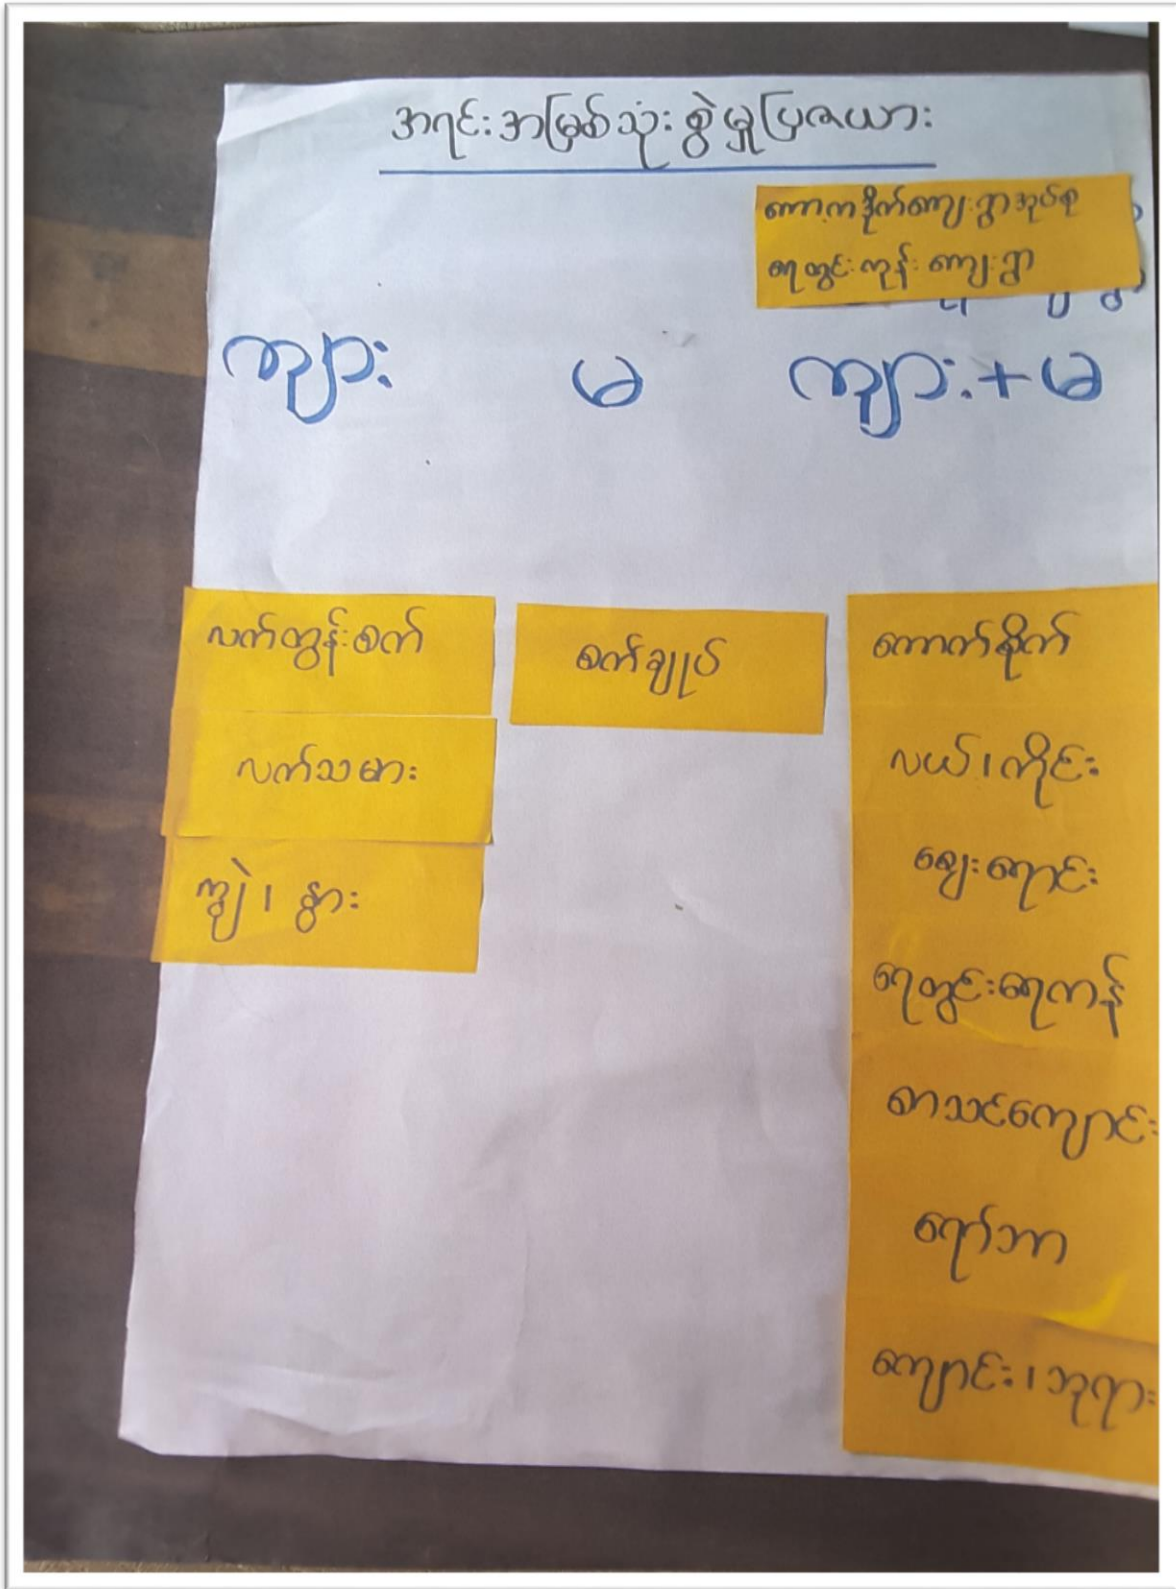 အရင်းအမြစ်သုံးစွဲမှုပြဇယား
ကော့ကဒိုက်ကျေးရွာအုပ်စု
ရေတွင်းကုန်းကျေးရွာ
ကျား
မ
ကျား+မ
လက်တွန်းစက်
လက်သမား
ကျွဲ၊ နွား
စက်ချုပ်
ကောက်စိုက်
လယ်၊ကိုင်း
ဈေးရောင်း
ရေတွင်းရေကန်
စာသင်ကျောင်း
ရော်ဘာ
ကျောင်း၊ဘုရား